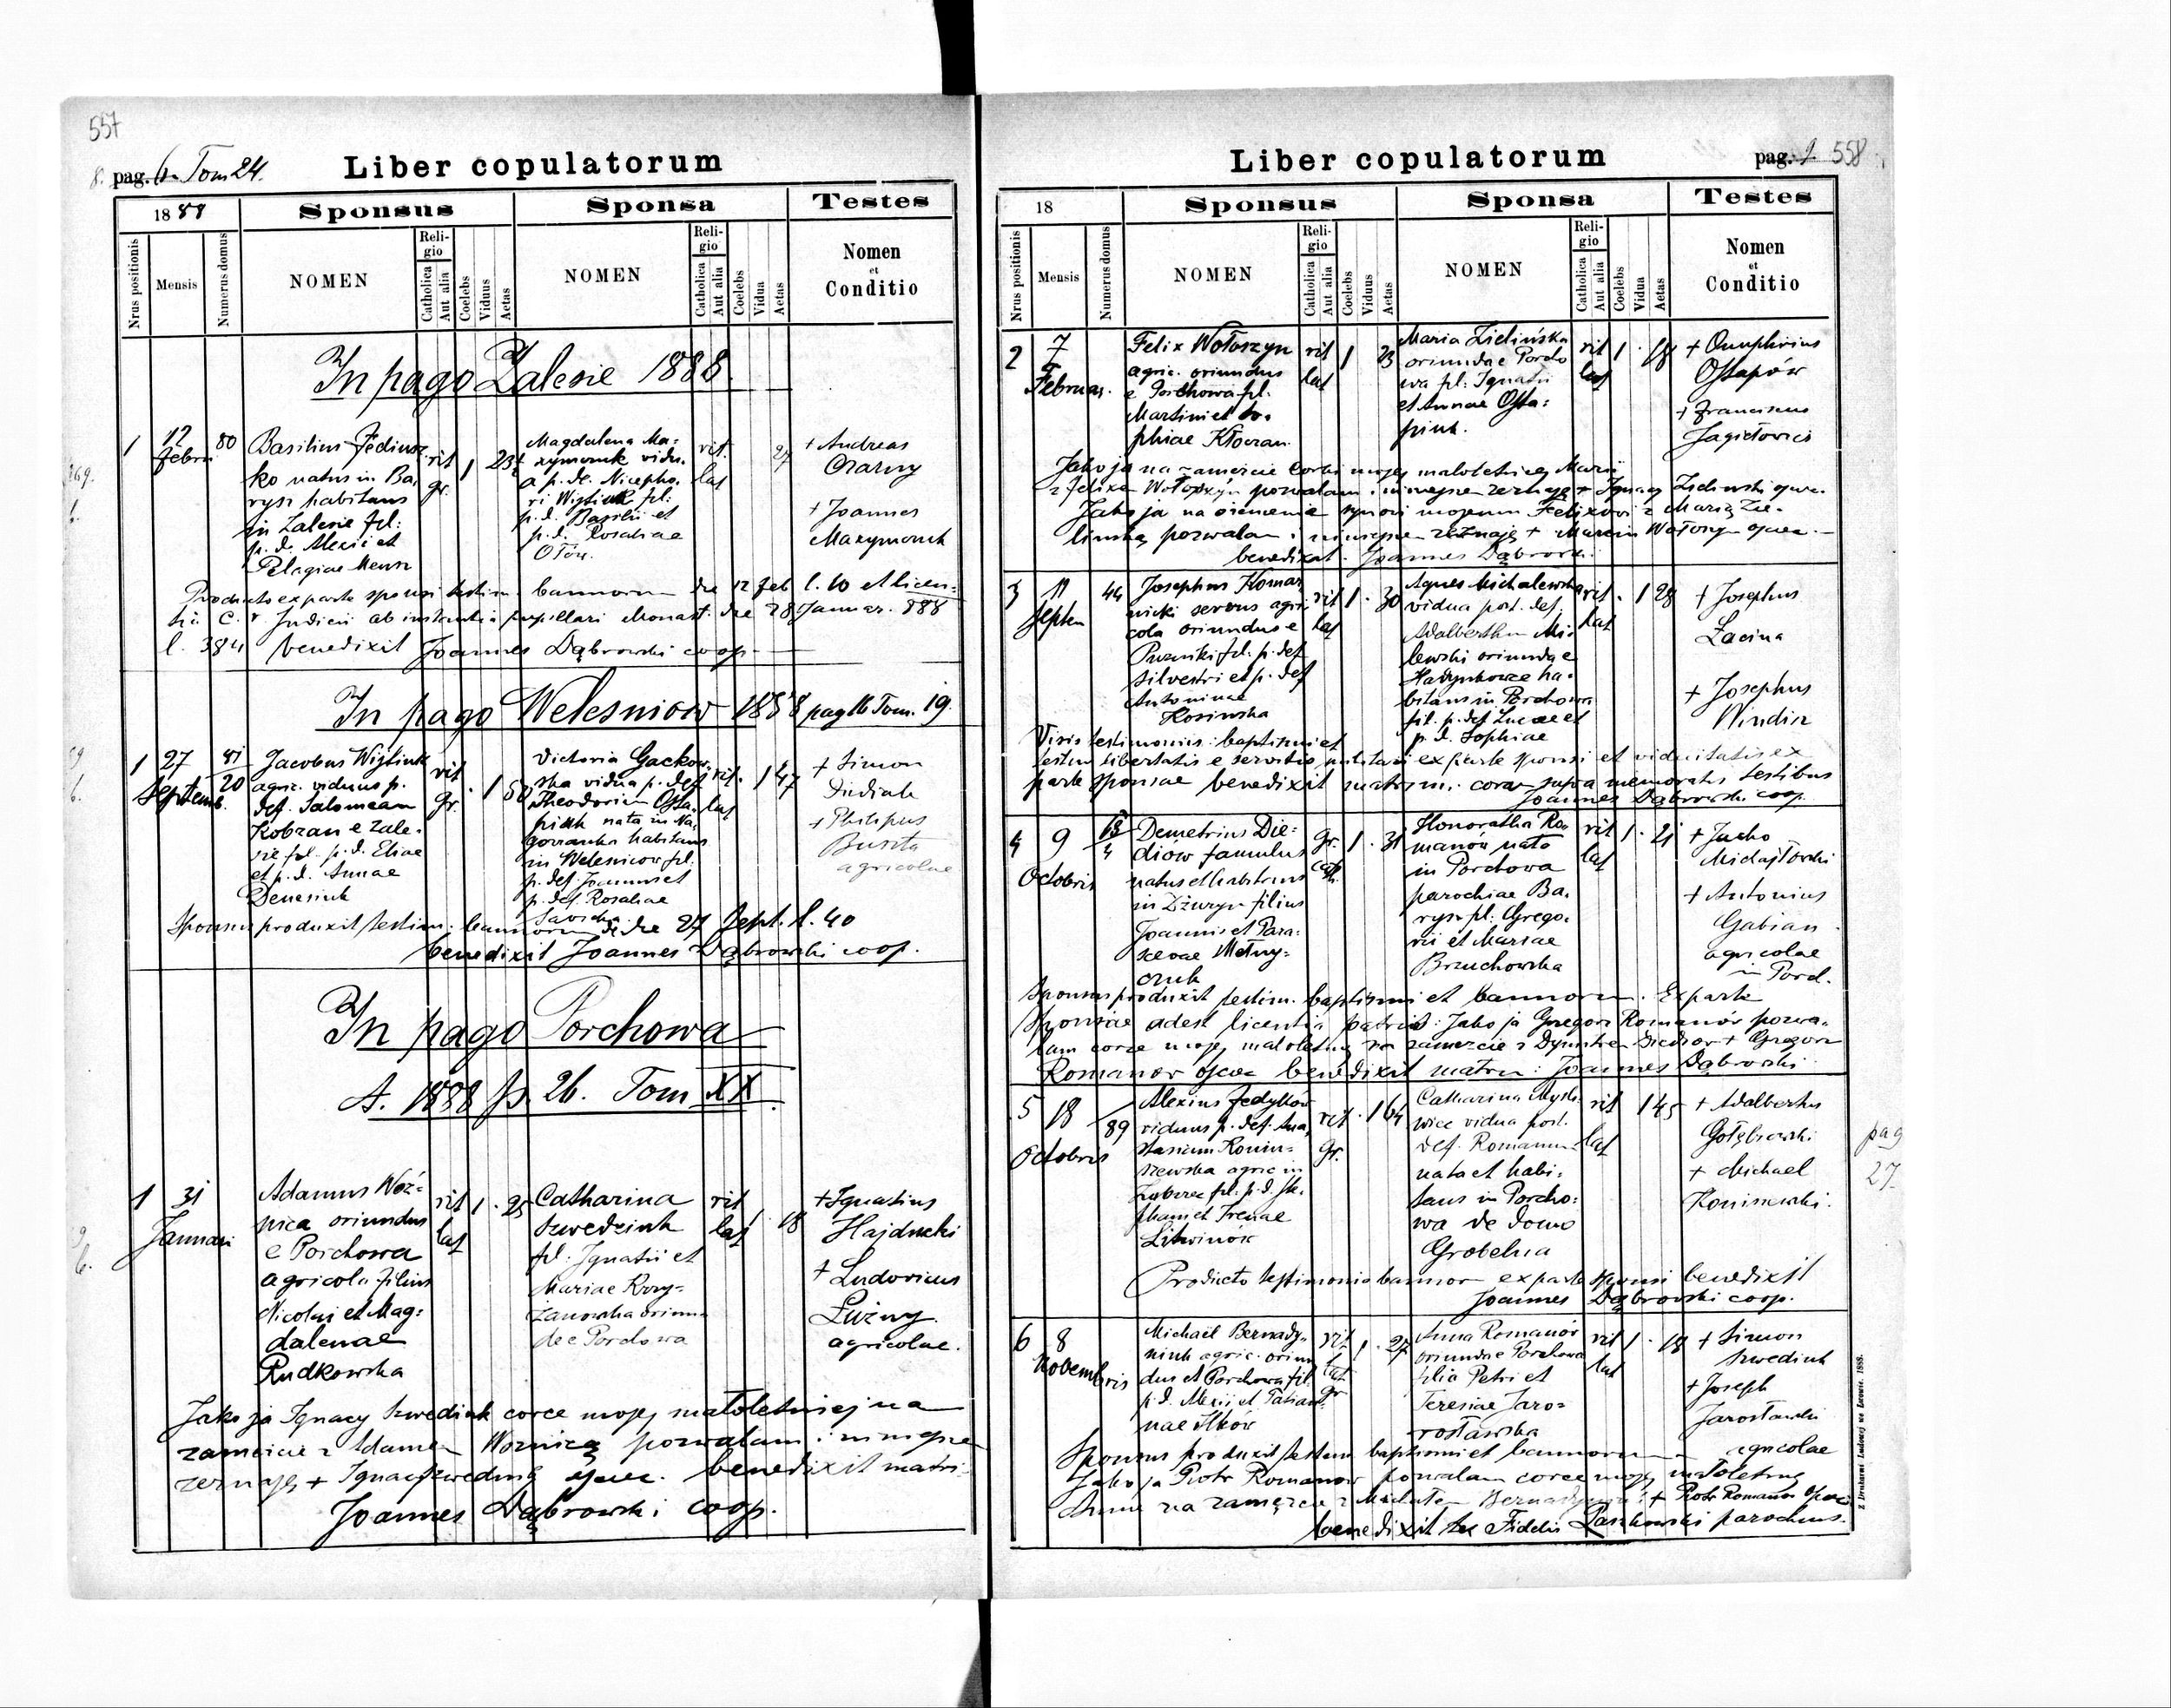 557
8. pag. 6. Tom 24.
Liber copulatorum
1888
Sponsus
Sponsa
Testes
Nrus positionis
Mensis
Numerus domus
NOMEN
Religio
Catholica
Aut alia
Coelebs
Viduus
Aetas
NOMEN
Religio
Catholica
Aut alia
Coelebs
Vidua
Aetas
Nomen
et
Conditio
In pago Zalesie 1888
1
12
Febru
80
Basilius Fedinsz
ko natus in Ba
rysz habitans
in Zalesie fil:
p. d. Alexii et
Pelagiae
rit
gr.
1
23
Magdalena Ma:
xymczuk vidu
a p. de. Nicepho
ri Wijtiuk fil:
p. d. Basilii et
p. d. Rosaliae
rit.
lat
27
+ Andreas
Czarny
+ Joannes
Maxymczuk
Producto ex parte sponsi testim. bannorum die 12 Feb l. 10 et licen:
tia C. r. Judicii ab instantia pupillari Monast. die 28 Januar. 888
l. 3841 benedixit Joannes Dąbrowski coop.
In pago Welesniow 1888 pag 16 Tom. 19.
1
27
Septemb.
41
20
Jacobus Wijtiuk
agric. viduus p.
def. Salomeam
Kobzan e Zale-
sie fil. p. d. Eliae
et p. d. Annae
Denesiuk
rit
gr.
1
50
Victoria Gackow
ska vidua p. def
Theodorium Osta
piuk nata in Na
gorzanka habitans
in Welesniow fil.
p. def. Joannis et
p. def. Rosaliae
Savicka
rit.
lat
1
47
+ Simon
Dudiak
+ Philipus
Buszta
agricolae
Sponsus produxit testim. bannorum de die 27 Sept. l. 40
benedixit Joannes Dąbrowski coop.
In pago Porchowa
A. 1888 p. 26. Tom XX.
1
31
Januari
Adamus Woź=
nica oriundus
e Porchowa
agricola filius
Nicolai et Mag:
dalenae
Rudkowska
rit
lat
1
25
Catharina
Szwedziuk
fil. Ignatii et
Mariae Kry-
żanowska oriun
de e Porchowa
rit
lat
1
18
+ Ignatius
Hajducki
+ Ludovicus
Luźny
agricolae.
Jako ja Ignacy Szwediuk corce mojej małoletniej na
zamęzcie z Adamem Woznicą pozwalam i niniejsze
zeznaję + Ignacy Szwediuk ojciec. benedixit matri.
Joannes Dąbrowski coop.
Liber copulatorum
pag. 558
18
Sponsus
Sponsa
Testes
Nrus positionis
Mensis
Numerus domus
NOMEN
Religio
Catholica
Aut alia
Coelebs
Viduus
Aetas
NOMEN
Religio
Catholica
Aut alia
Coelebs
Vidua
Aetas
Nomen
et
Conditio
2
7
Februar.
Felix Wołoszyn
agric. oriundus
e Porchowa fil.
Martini et So=
phiae Kłoczan.
rit
lat
1
23
Maria Zielińska
oriunda e Porcho
wa fil: Ignatii
et Annae Osta:
piuk.
rit
lat
1
18
+ Onuphrius
Ostapów
+ Franciscus
Jagiełowicz
Jako ja na zamęzcie corki mojej małoletniej Maryi
z Felixem Wołoszyn pozwalam i niniejsze zeznaję + Ignacy Zielinski ojciec.
Jako ja na ożenienie synowi mojemu Felixowi z Marią Zie-
linską pozwalam i niniejsze zeznaję + Marcin Wołoszyn ojciec.
benedixit Joannes Dąbrowski
3
11
Septem
44
Josephus Komar
nicki servus agri
cola oriundus e
Puzniki fil. p. def
Silvestri et p. def
Antoninae
Kosinska
rit
lat
1
30
Agnes Michalewska
vidua post. def.
Adalbertum Mi:
lewski oriunda e
Hadynkowce ha-
bitans in Porchowa
fil. p. def Lucae et
p. d. Sophiae
rit
lat
1
28
+ Josephus
Łacina
+ Josephus
Windisz
Visis testimoniis: baptismi et
testim libertatis e servitio militari ex parte sponsi et viduitatis ex
parte sponsae benedixit matrim. coram supra memoratis testibus
Joannes Dąbrowski coop.
4
9
Octobris
13
4
Demetrius Die=
diów famulus
natus et habitans
in Dżuryn filius
Joannis et Para:
scevae Melny=
czuk
Gr.
cath.
1
31
Honoratha Ro
manów nata
in Porchowa
parochiae Ba
rysz fil. Grego=
rii et Mariae
Bruchowska
rit
lat
1
21
+ Jacko
Michajłowski
+ Antonius
Gabian
agricolae
in Porch.
Sponsus produxit testim. baptismi et bannorum. Ex parte
sponsae adest licentia patris: Jako ja Gregorz Romanów pozwa-
lam corce mojej małoletniej na zamęzcie z Dymitrem Diediow + Gregorz
Romanow ojciec benedixit matrim: Joannes Dąbrowski
5
18
Octobris
89
Alexius Fedyków
viduus p. def. Ana
stasiam Konin=
szewska agric in
Zubrzec fil. p. d. Ste
phani et Irenae
Litwinów
rit
Gr.
1
64
Catharina Mysli
wiec vidua post.
def. Romanum
nata et habi-
tans in Porcho:
wa de domo
Grobelna
rit
lat
1
45
+ Adalbertus
Gołębiowski
+ Michael
Koniszewski.
pag
27.
Producto testimonio bannorum ex parte sponsi benedixit
Joannes Dąbrowski coop.
6
8
Novembris
Michaël Bernady-
niuk agric. oriun
dus e Porchowa fil.
p. d. Alexii et Tatian
nae Ilków
rit
gr
1
27
Anna Romanów
oriunda e Porchowa
filia Petri et
Teresiae Jaro=
sławska
rit
lat
1
18
+ Simon
Szwediuk
+ Joseph
Jarosławski
agricolae
Sponsus produxit testim baptismi et bannorum
Jako ja Piotr Romanów pozwalam corce mojej małoletniej
Annie na zamęzcie z Michałem Bernadyniuk + Piotr Romanów Ojciec
benedixit Fidelis Paszkowski parochus.
Z Drukarni Ludowej we Lwowie. 1888.